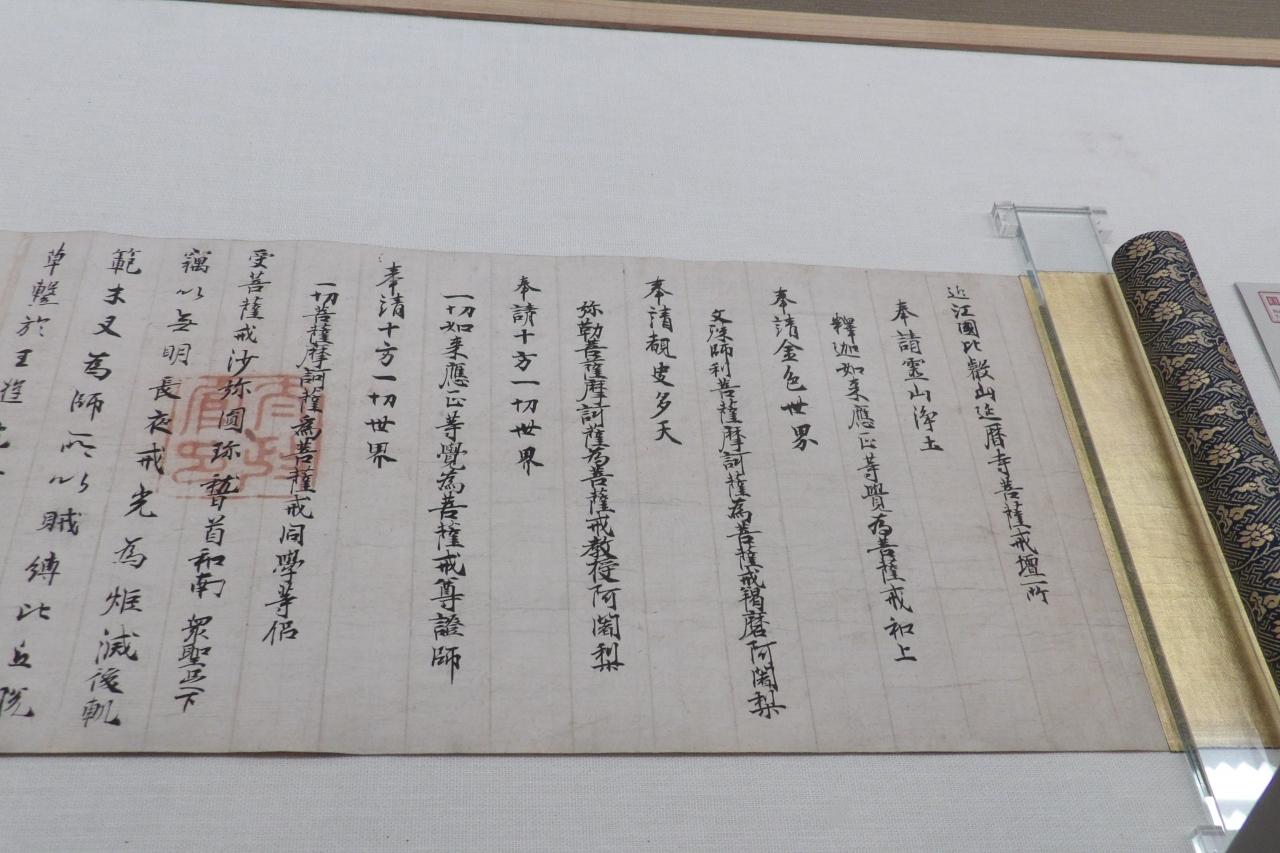 近江國比叡山延曆寺菩薩戒壇所
奉請靈山淨土
釋迦如来應正等覺為菩薩戒和上
奉請金色世界
文殊師利菩薩摩訶薩為菩薩戒羯磨阿闍梨
奉請覩史多天
弥勒菩薩摩訶薩為菩薩戒教授阿闍梨
奉請十方一切世界
一切如来應正等覺為菩薩戒尊證師
奉請十方一切世界
一切菩薩摩訶薩為菩薩戒同學等侶
受菩薩戒沙弥圓珍稽首和南衆聖足下
竊以無明長夜戒光為炬滅後軌
範木叉為師所以賊縛比丘脱
草繫於王遊